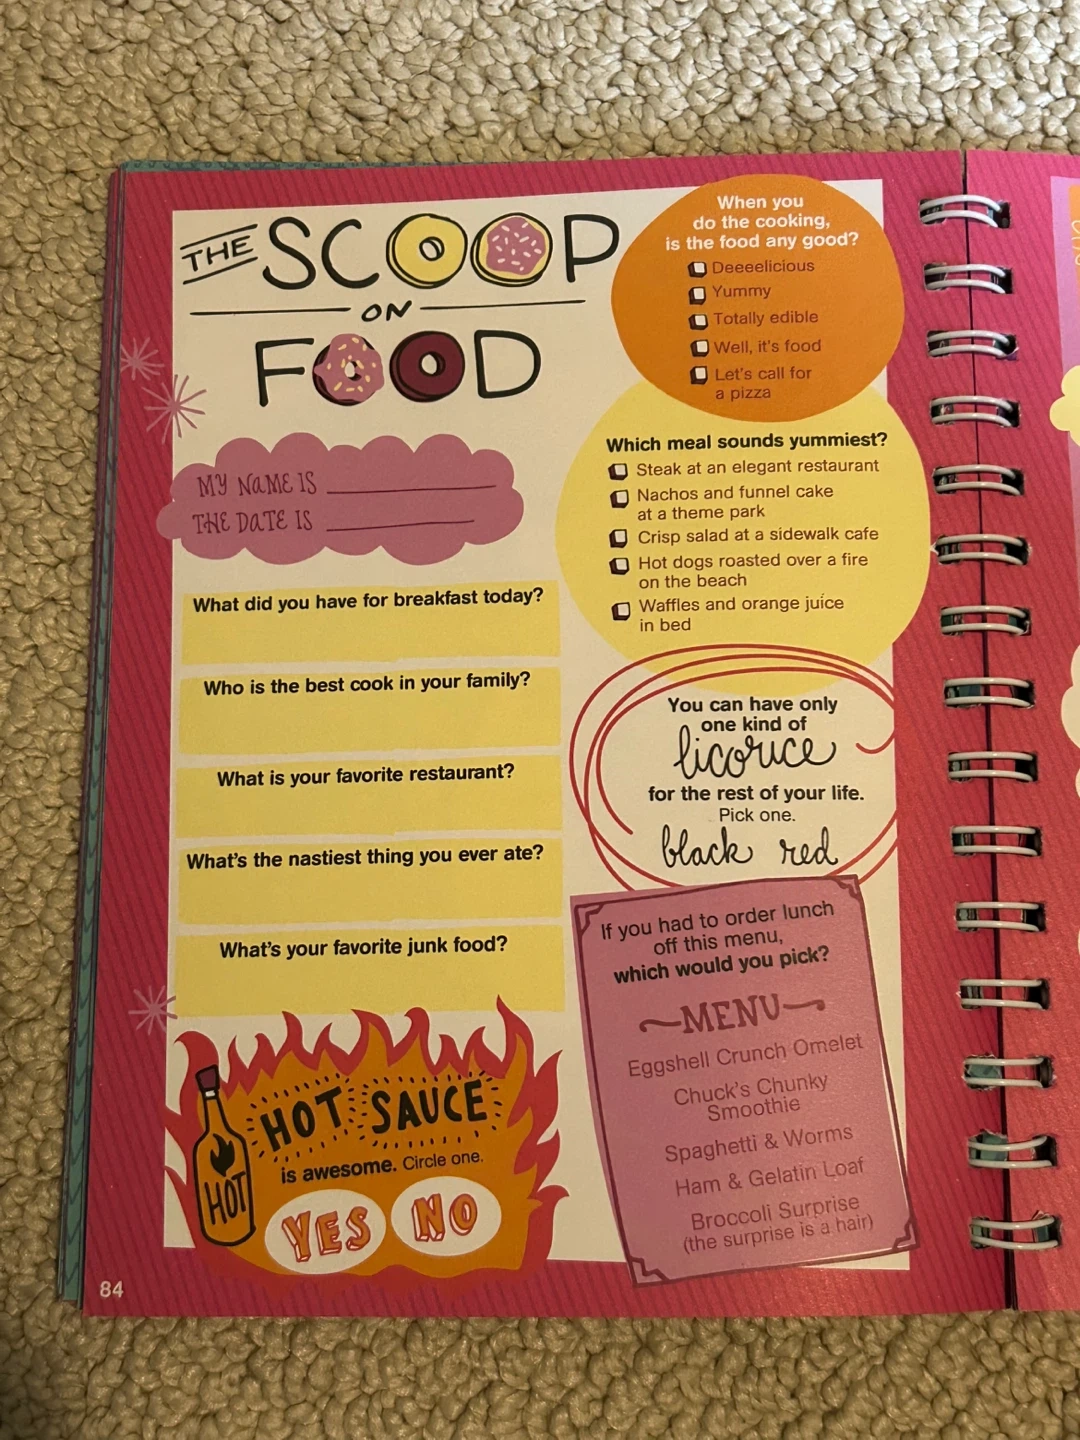 THE SCOOP
ON
FOOD
MY NAME IS
THE DATE IS
What did you have for breakfast today?
Who is the best cook in your family?
What is your favorite restaurant?
What's the nastiest thing you ever ate?
What's your favorite junk food?
HOT SAUCE
is awesome. Circle one.
HOT
YES NO
84
When you
do the cooking,
is the food any good?
Deeeelicious
Yummy
Totally edible
Well, it's food
Let's call for
a pizza
Which meal sounds yummiest?
Steak at an elegant restaurant
Nachos and funnel cake
at a theme park
Crisp salad at a sidewalk cafe
Hot dogs roasted over a fire
on the beach
Waffles and orange juice
in bed
You can have only
one kind of
licorice
for the rest of your life.
Pick one.
black red
If you had to order lunch
off this menu,
which would you pick?
MENU
Eggshell Crunch Omelet
Chuck's Chunky
Smoothie
Spaghetti & Worms
Ham & Gelatin Loaf
Broccoli Surprise
(the surprise is a hair)